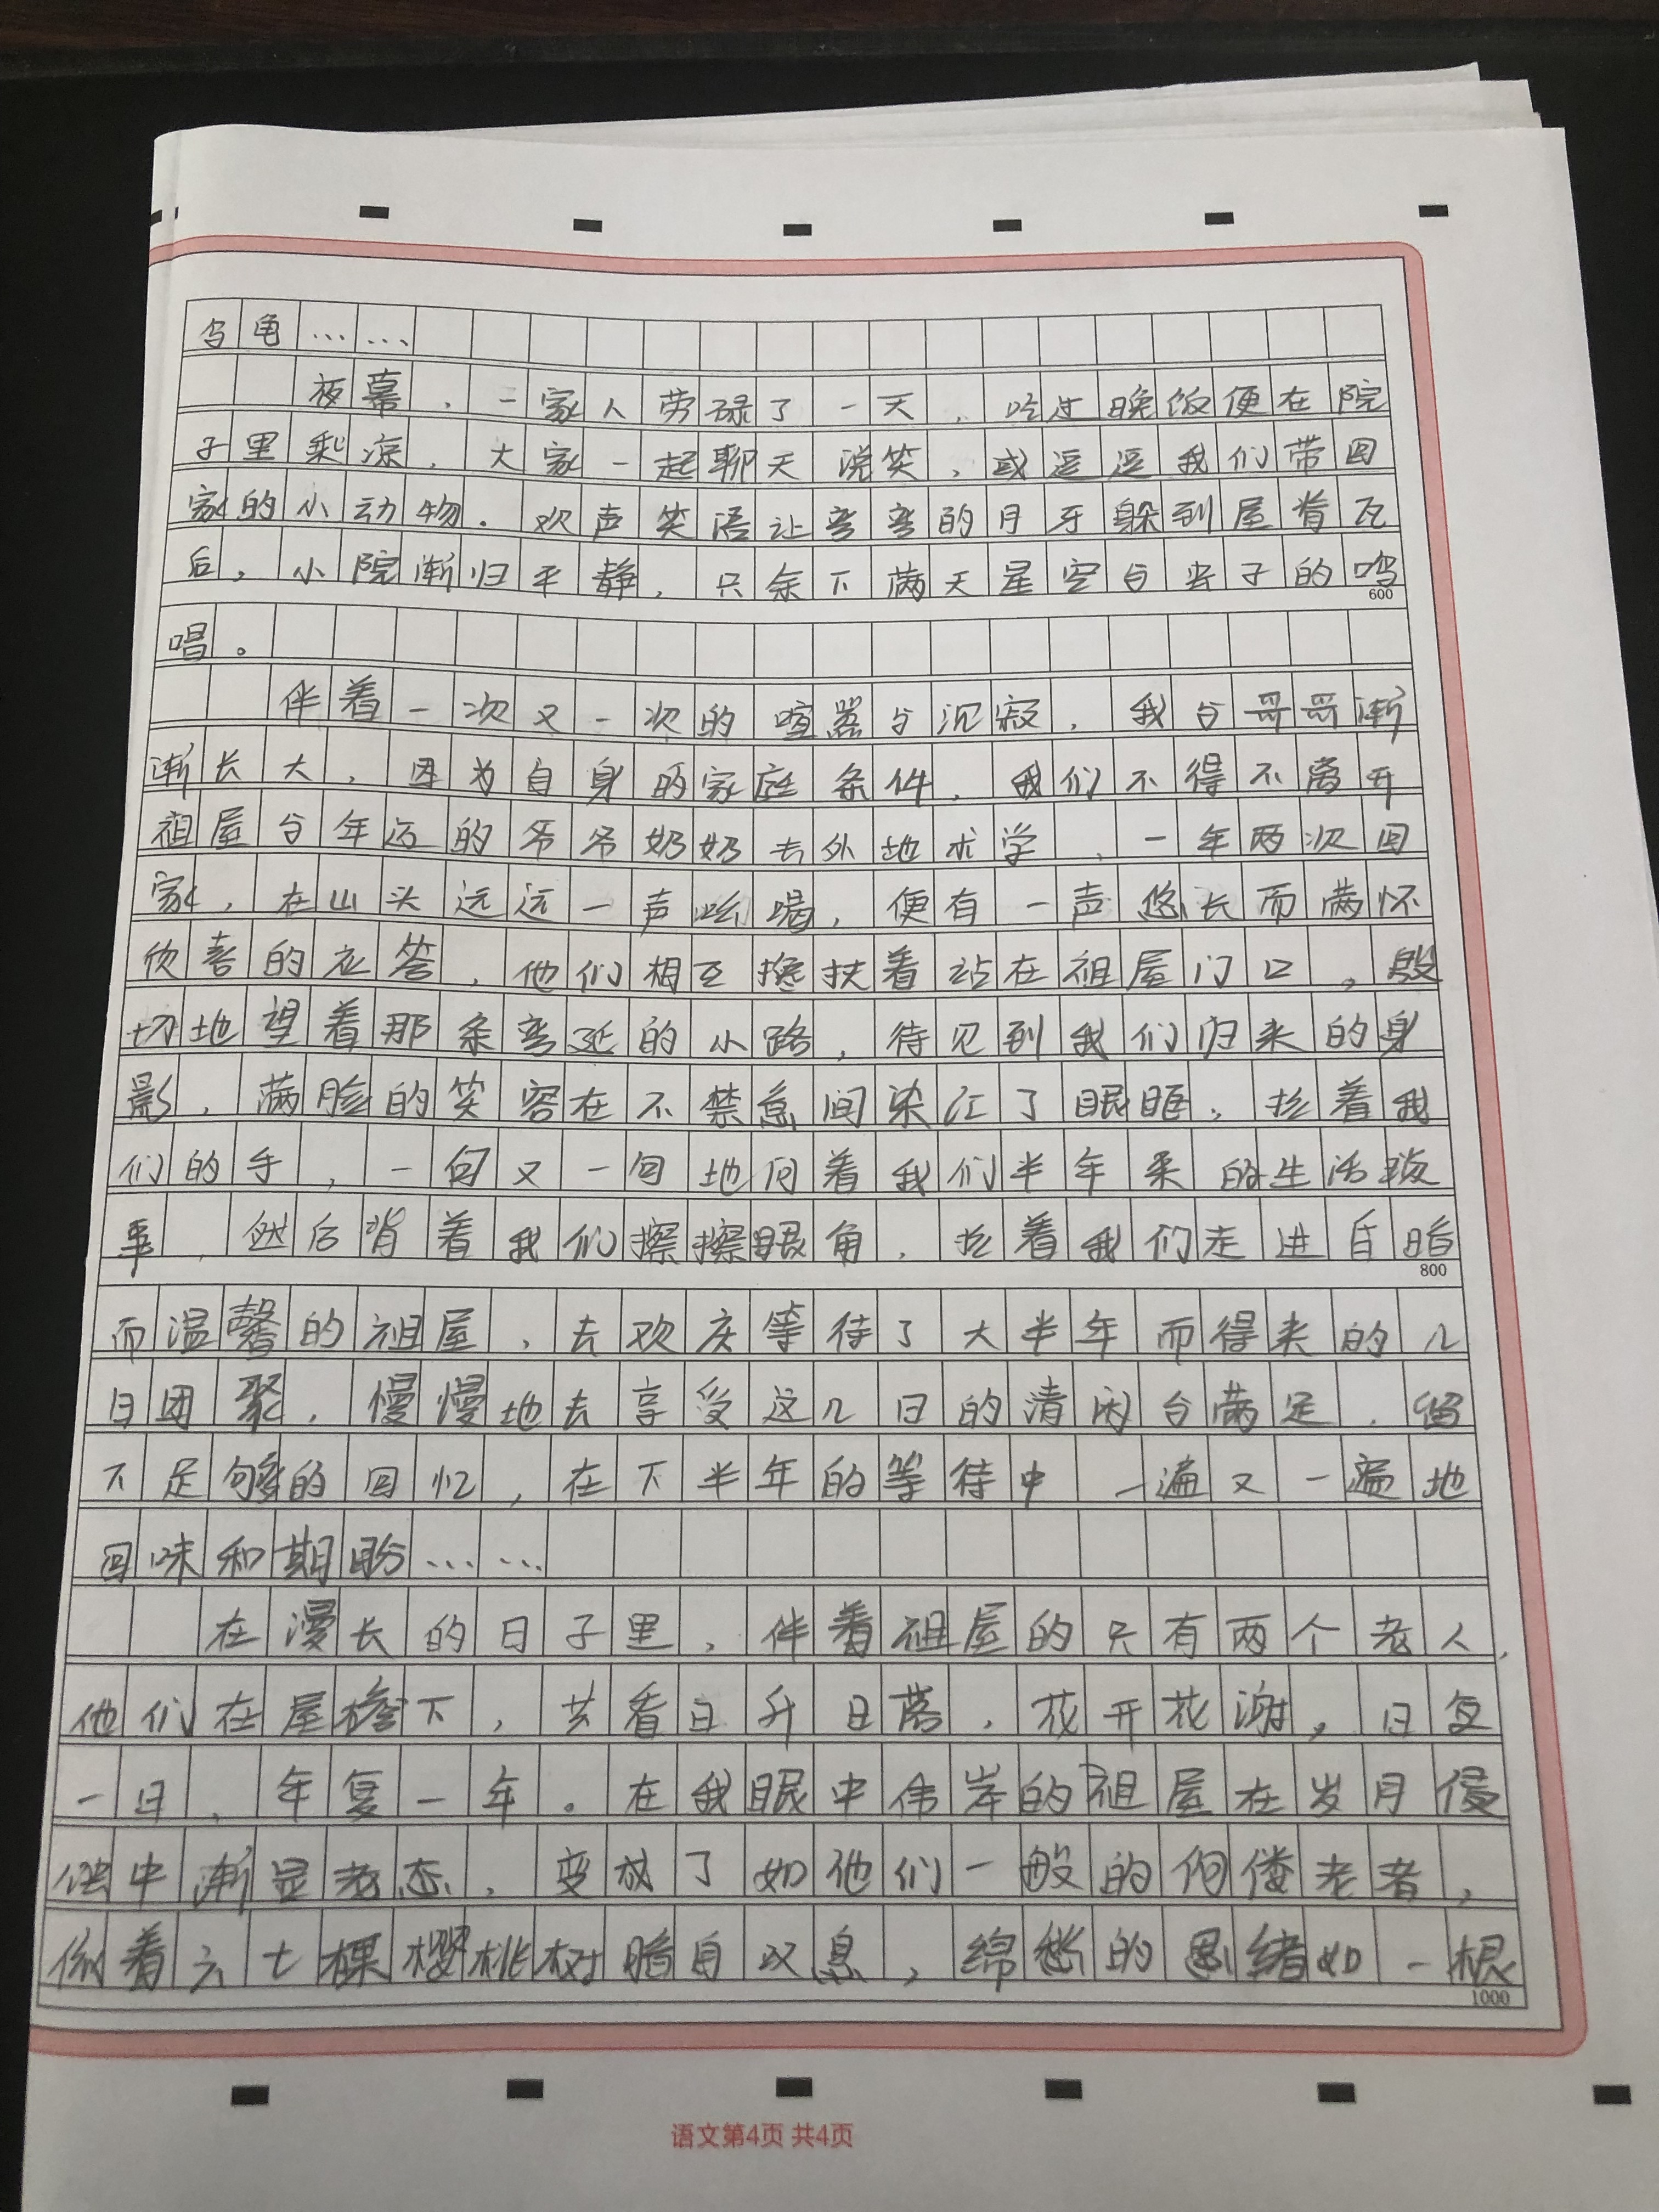 乌龟……
夜幕，一家人劳碌了一天，吃过晚饭便在院
子里乘凉，大家一起聊天说笑，或逗逗我们带回
家的小动物。欢声笑语让弯弯的月牙躲到屋脊瓦
后，小院渐归平静，只余下满天星空与虫子的鸣
600
唱。
伴着一次又一次的喧嚣与沉寂，我与哥哥渐
渐长大，因为自身的家庭条件，我们不得不离开
祖屋与年迈的爷爷奶奶去外地求学，一年两次回
家，在山头远远一声吆喝，便有一声悠长而满怀
欣喜的应答，他们相互搀扶着站在祖屋门口，殷
切地望着那条弯延的小路，待见到我们归来的身
影，满脸的笑容在不禁意间染红了眼眶，拉着我
们的手，一句又一句地问着我们半年来的生活琐
事，然后背着我们擦擦眼角，拉着我们走进昏暗
800
而温馨的祖屋，去欢庆等待了大半年而得来的几
日团聚，慢慢地去享受这几日的清闲与满足，留
下足够的回忆，在下半年的等待中一遍又一遍地
回味和期盼……
在漫长的日子里，伴着祖屋的只有两个老人，
他们在屋檐下，共看日升日落，花开花谢，日复
一日，年复一年。在我眼中伟岸的祖屋在岁月侵
蚀中渐显老态，变成了如他们一般的佝偻老者，
倚着六七棵樱桃树暗自叹息，绵愁的思绪如一根
1000
语文第4页 共4页